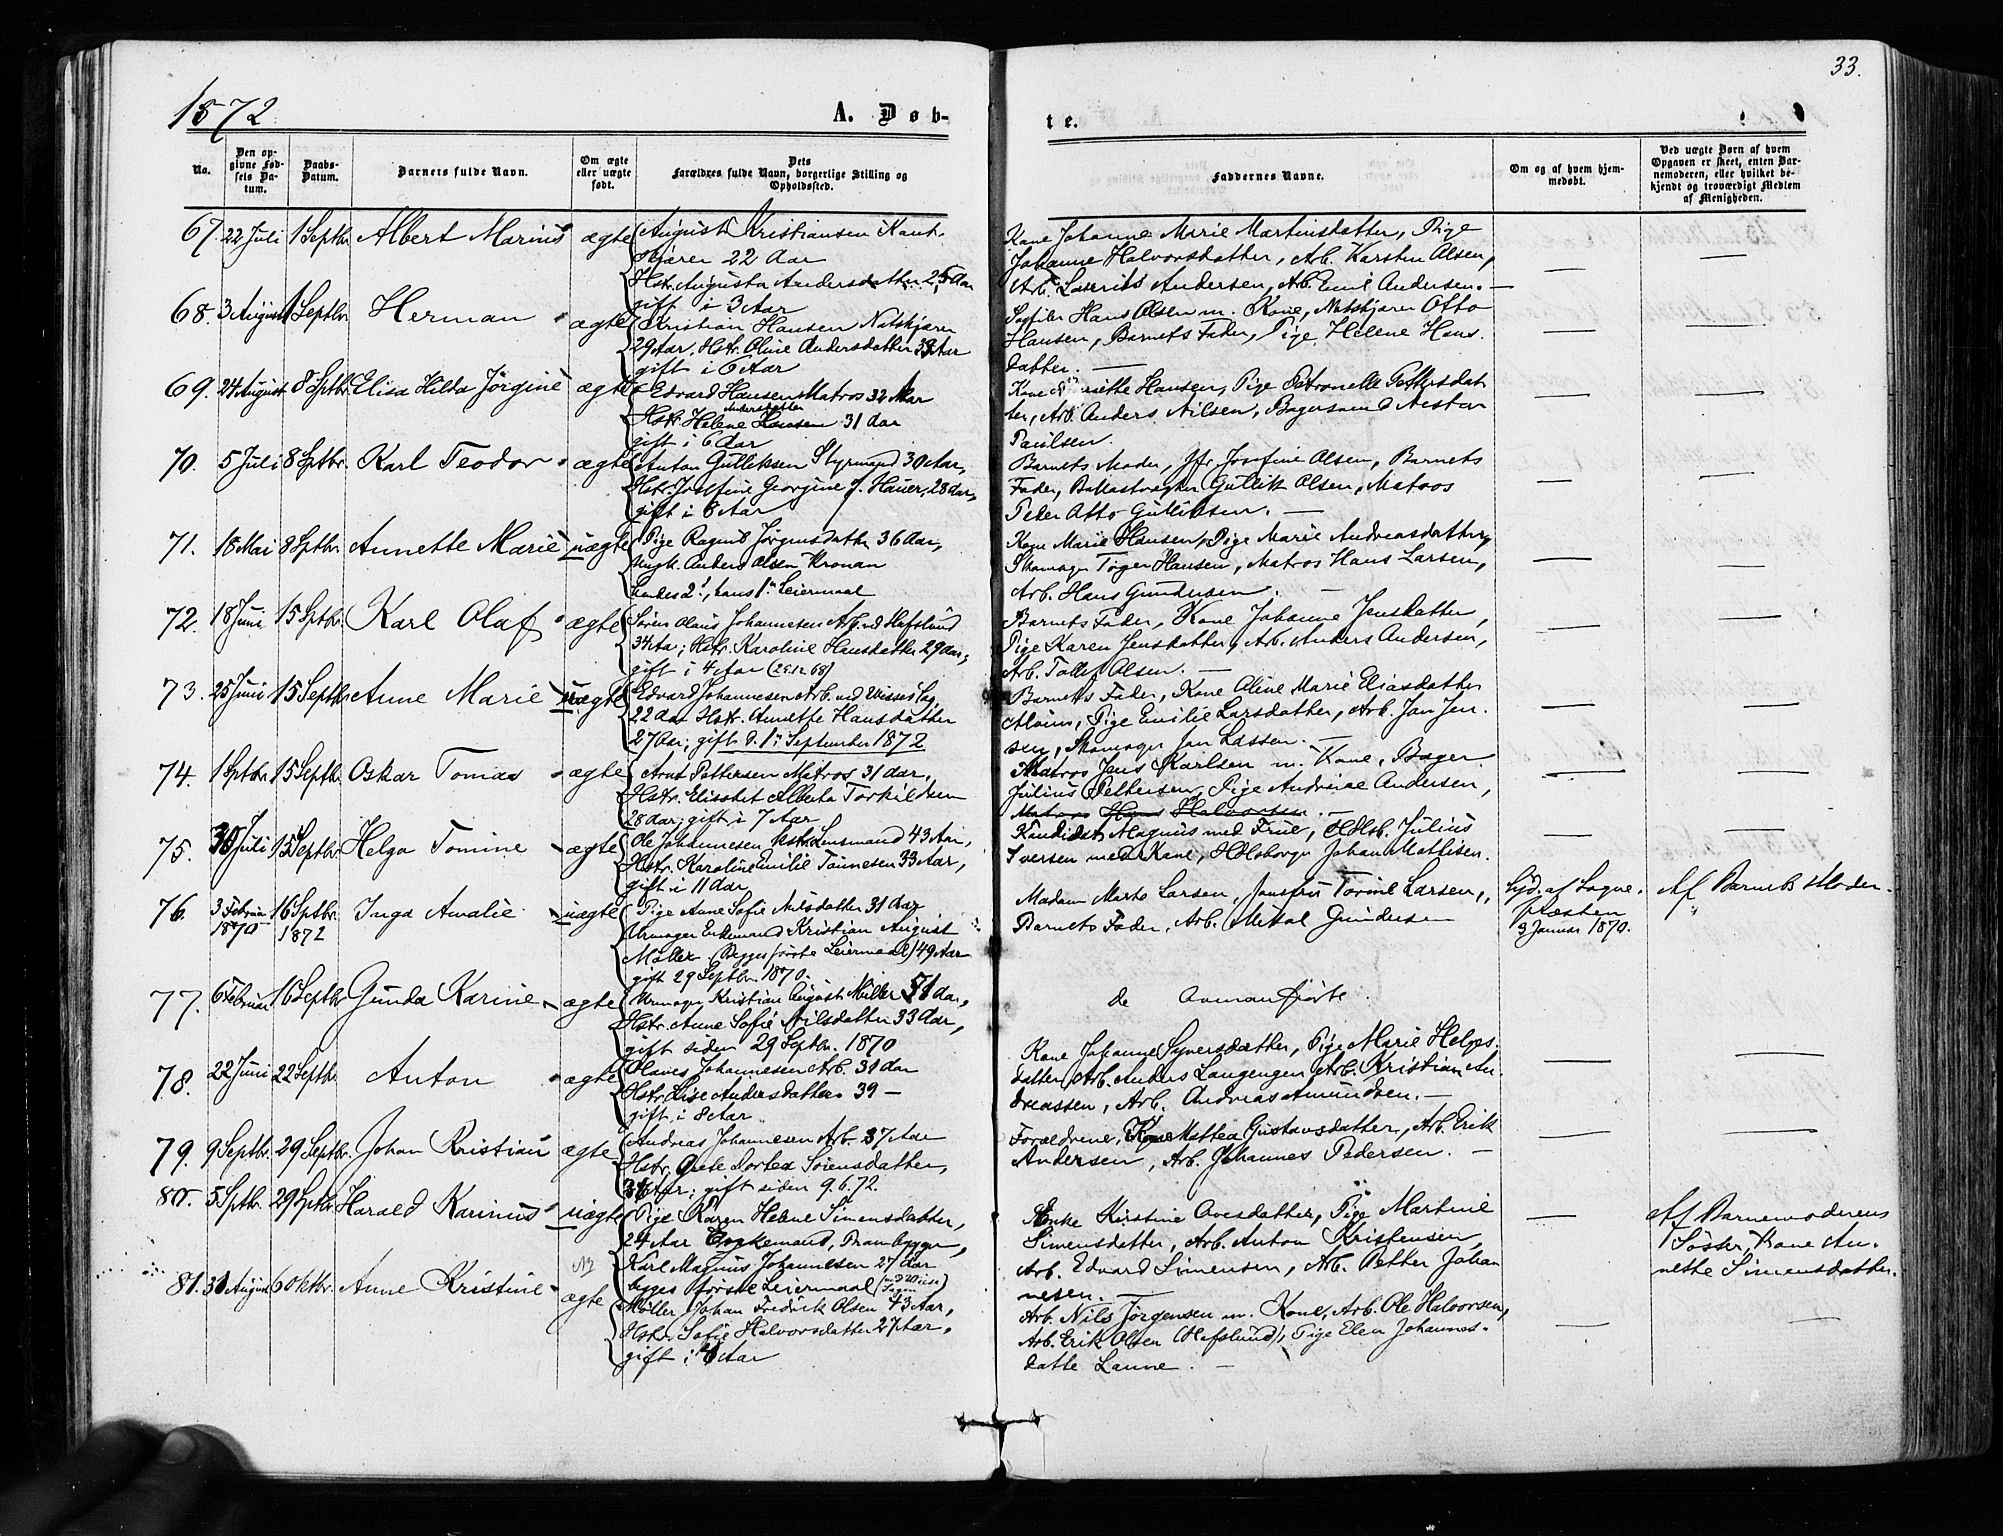 33.
1872
A. Døb-
te.
No.
Den opgivne Fødsels Datum.
Daabs-Datum.
Barnets fulde Navn.
Om ægte eller uægte født.
Dets Forældres fulde Navn, borgerlige Stilling og Opholdssted.
Faddernes Navne.
Om og af hvem hjemmedøbt.
Ved uægte Børn af hvem Opgaven er skeet, enten Barnemoderen, eller hvilket bekjendt og troværdigt Medlem af Menigheden.
67. 22 Juli 1 Septbr. Albert Marius ægte
August Kristiansen
22 Aar
Hstr. Augusta Andersdatter 25 Aar
gift i 3 Aar
Kone Johanne Marie Martinsdatter, Pige
Johanne Halvorsdatter, Arb. Karsten Olsen,
Arb. Laurits Andersen, Arb. Emil Andersen. —
68. 3 August 1 Septbr. Herman ægte
Kristian Hansen Natskjører
29 Aar, Hstr. Oline Andersdatter Aar
gift i 6 Aar
Hans Olsen m. Kone, Natskjører Otto
Hansen, Barnets Fader, Pige Helene Hans
datter. —
69. 24 August 8 Septbr. Elisa Hilda Jørgine ægte
Edvard Hansen Matros 32 Aar
Hstr. Helene Andersdatter Hansen 31 Aar
gift i 6 Aar
Kone Hansen, Pige Petronelle Pettersdat
ter, Arb. Anders Nilsen, Bagersvend
Paulsen.
70. 5 Juli 8 Septbr. Karl Teodor ægte
Anton Gulliksen Styrmand 30 Aar,
Hstr. Josefine Georgine f. Hauer, 28 Aar,
gift i 8 Aar
Barnets Moder, Jfr. Josefine Olsen, Barnets
Fader, Gullik Olsen, Matros
Peder Otto Gulliksen. —
71. 18 Mai 8 Septbr. Annette Marie uægte
Pige Ragnil Jørgensdatter 36 Aar,
Ungk. Anders Olsen Kronan
hendes 2', hans 1' Leiermaal
Kone Marie Hansen, Pige Marie Andreasdatter,
Skomager Tøger Hansen, Matros Hans Larsen,
Arb. Hans Gundersen. —
72. 18 Juni 15 Septbr. Karl Olaf ægte
Søren Olaus Johannesen Arb. ved Hafslund
34 Aar; Hstr. Karoline Hansdatter 29 Aar,
gift i 4 Aar (29.12.68)
Barnets Fader, Kone Johanne Jensdatter,
Pige Karen Jensdatter, Arb. Anders Andersen,
Arb. Tollef Olsen. —
73. 25 Juni 15 Septbr. Anne Marie uægte
Edvard Johannesen Arb. ved
22 Aar Hstr. Annette Hansdatter
27 Aar; gift d. 1' September 1872
Barnets Fader, Kone Oline Marie Eliasdatter
Pige Emilie Larsdatter, Arb. Jan Jen-
sen, Skomager Jan Lassen. —
74. 1 Septbr. 15 Septbr. Oskar Tomas ægte
Arnt Pettersen Matros 31 Aar,
Hstr. Elisabet Alberta Torkildsen
28 Aar; gift i 7 Aar
Matros Jens Karlsen m. Kone, Bager
Julius Pettersen, Pige Andrine Andersen,
Matros Hans Halvorsen —
75. 30 Juli 15 Septbr. Helga Tomine ægte
Ole Johannesen Lensmand 43 Aar,
Hstr. Karoline Emilie Tønnesen 33 Aar,
gift i 11 Aar
Kandidat Magnus med Frue, Julius
Iversen med Kone, Johan Mathisen.
76. 3 Februar 1870 16 Septbr. 1872 Inga Amalie uægte
Pige Anne Sofie Nilsdatter 31 Aar
Urmager Enkemand Kristian August
Møller (Begges første Leiermaal) 49 Aar
gift 29 Septbr. 1870.
Madam Marte Larsen, Jomfru Torine Larsen,
Barnets Fader, Arb. Gundersen
Hjd. af Sogne-
præsten
3 Januar 1870.
Af Barnets Moder.
77. 6 Februar 16 Septbr. Gunda Karine ægte
Urmager Kristian August Møller 51 Aar,
Hstr. Anne Sofie Nilsdatter 33 Aar,
gift siden 29 Septbr. 1870
de Ovenanførte.
78. 22 Juni 22 Septbr. Anton ægte
Johannesen Arb. Aar
Hstr. Lise Andersdatter 39 —
gift i 8 Aar
Kone Johanne Syversdatter, Pige Marie Helges-
datter, Arb. Anders Langengen, Arb. Kristian An-
dreassen, Arb. Andreas Amundsen. —
79. 9 Septbr. 29 Septbr. Johan Kristian ægte
Andreas Johannesen Arb. 37 Aar
Hstr. Grete Dortea Sørensdatter,
gift siden 9.6.72.
Forældrene, Kone Mattea Gustavsdatter, Arb. Erik
Andersen, Arb. Johannes Pedersen. —
80. 5 Septbr. 29 Septbr. Harald Karinus uægte
Pige Karen Helene Simensdatter,
24 Aar Enkemand, Prambygger,
Karl Magnus Johannesen 27 Aar
begges første Leiermaal
Enke Kirstine Ovesdatter, Pige Martine
Simensdatter, Arb. Anton Kristensen,
Arb. Edvard Simensen, Arb. Petter Johan
nesen. —
Af Barnemoderens
Søster, Kone An-
nette Simensdatter.
81. 31 August 6 Oktbr. Anne Kristine ægte
Møller, Johan Fredrik Olsen 43 Aar,
Hstr. Sofie Halvorsdatter 27 Aar,
gift i Aar
Arb. Nils Jørgensen m. Kone, Arb. Ole Halvorsen,
Arb. Erik Olsen (Hafslund), Pige Elen Johannes-
datter —